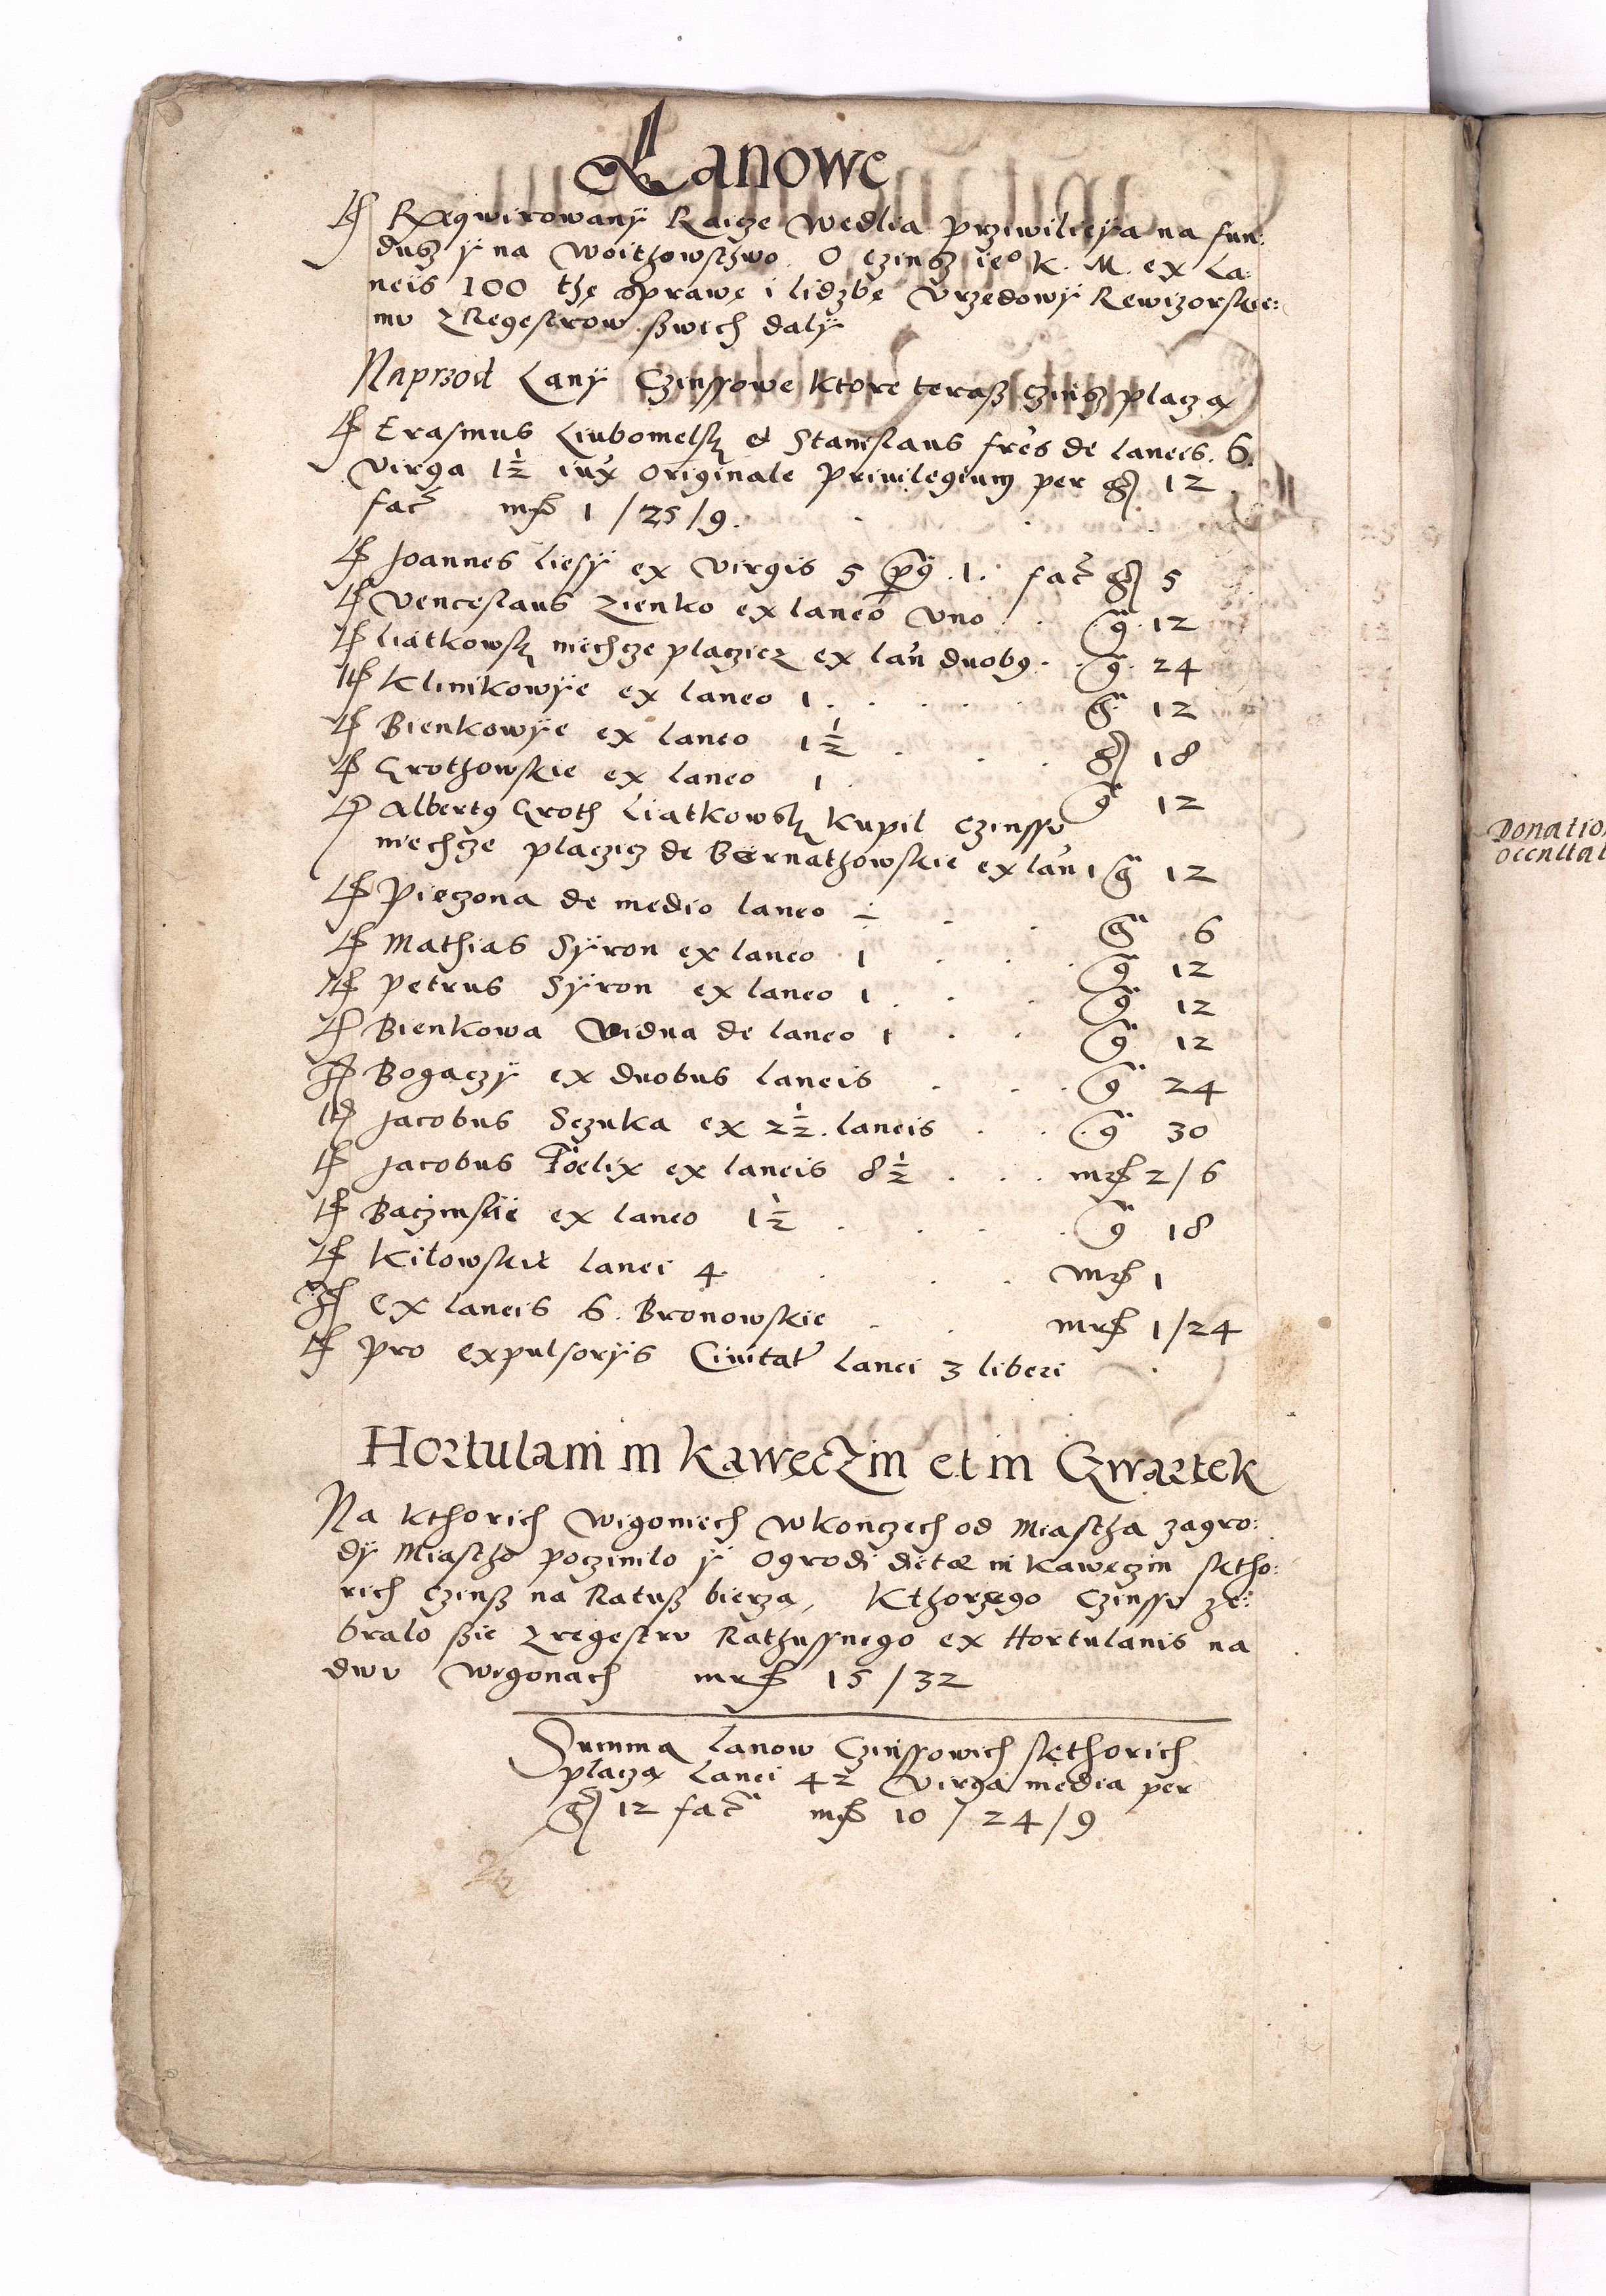 Lanowe
It Reqwirowany Raicze wedlia przywilieÿa na fun:
dusz ÿ na woithowsthwo. O czinsz ieº K. M. ex La:
neis 100 thę sprawę i lidzbę vrzedowÿ Rewizorskie:
mu z Regestrow sswich dalÿ
Naprzod Lanÿ Czinssowe ktore teraß czinsz placzą
It Erasmus Liubomelsky et Stanislaus fr̃es de laneis. 6.
virga 1½ iux̃ Originale Priuilegium per gr 12
fac̃ mrc 1 / 25 / 9.
It Joannes Liesÿ ex virgis 5 per g. 1. fac̃ gr 5
It Venceslaus Zienko ex laneo vno . . g 12
It Liatkowsky niechcze placzicz ex lan̄ duobꝯ . . g 24
It Klimkowÿe ex laneo 1 . . . . g 12
It Bienkowÿe ex laneo 1½ . . . gr 18
It Grothowskie ex laneo 1 . g 12
It Albertꝯ Groth Liatkowsky kupil czinssu
niechcze placzicz de Bernathowskie ex lan̄ 1 g 12
It Pieczona de medio laneo ½ . . g 6
It Mathias Sÿron ex laneo 1 . . . g 12
It Petrus Sÿron ex laneo 1 . . . g 12
It Bienkowa vidua de laneo 1 . . g 12
It Bogaczÿ ex duobus laneis . . . g 24
It Jacobus Sczuka ex 2½. laneis . . g 30
It Jacobus Foelix ex laneis 8½ . . . mrc 2 / 6
It Baczinskie ex laneo 1½ . . . g 18
It Kitowskie lanei 4 . . . mrc 1
It Ex laneis 6. Bronowskie . . mrc 1 / 24
It Pro expulsorÿs Ciuitat̃ Lanei 3 liberi
Hortulani in Kawęczin et in Czwartek
Na kthorich wigoniech w konczech od Miastha zagro:
dÿ Miastho poczinilo ÿ Ogrodi dictæ in Kawęczin sktho:
rich czinß na Ratuß bierzą, Kthorzego Czinssu ze:
bralo ßie z regestru Rathussnego ex Hortulanis na
dwu wigonach mrc 15 / 32
Summa Lanow Czinssowich skthorich
placzą Lanei 42 virga media per
gr 12 fac̃ mrc 10 / 24 / 9
Donatio
occultat